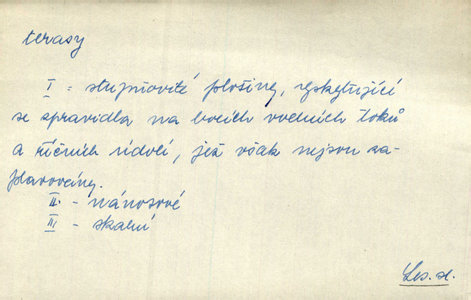 terasy
I = stupňovité plošiny, vyskytující
se zpravidla na bocích vodních toků
a říčních údolí, jež však nejsou za-
plavovány.
II. - nánosové
III - skalní
Les. sl.